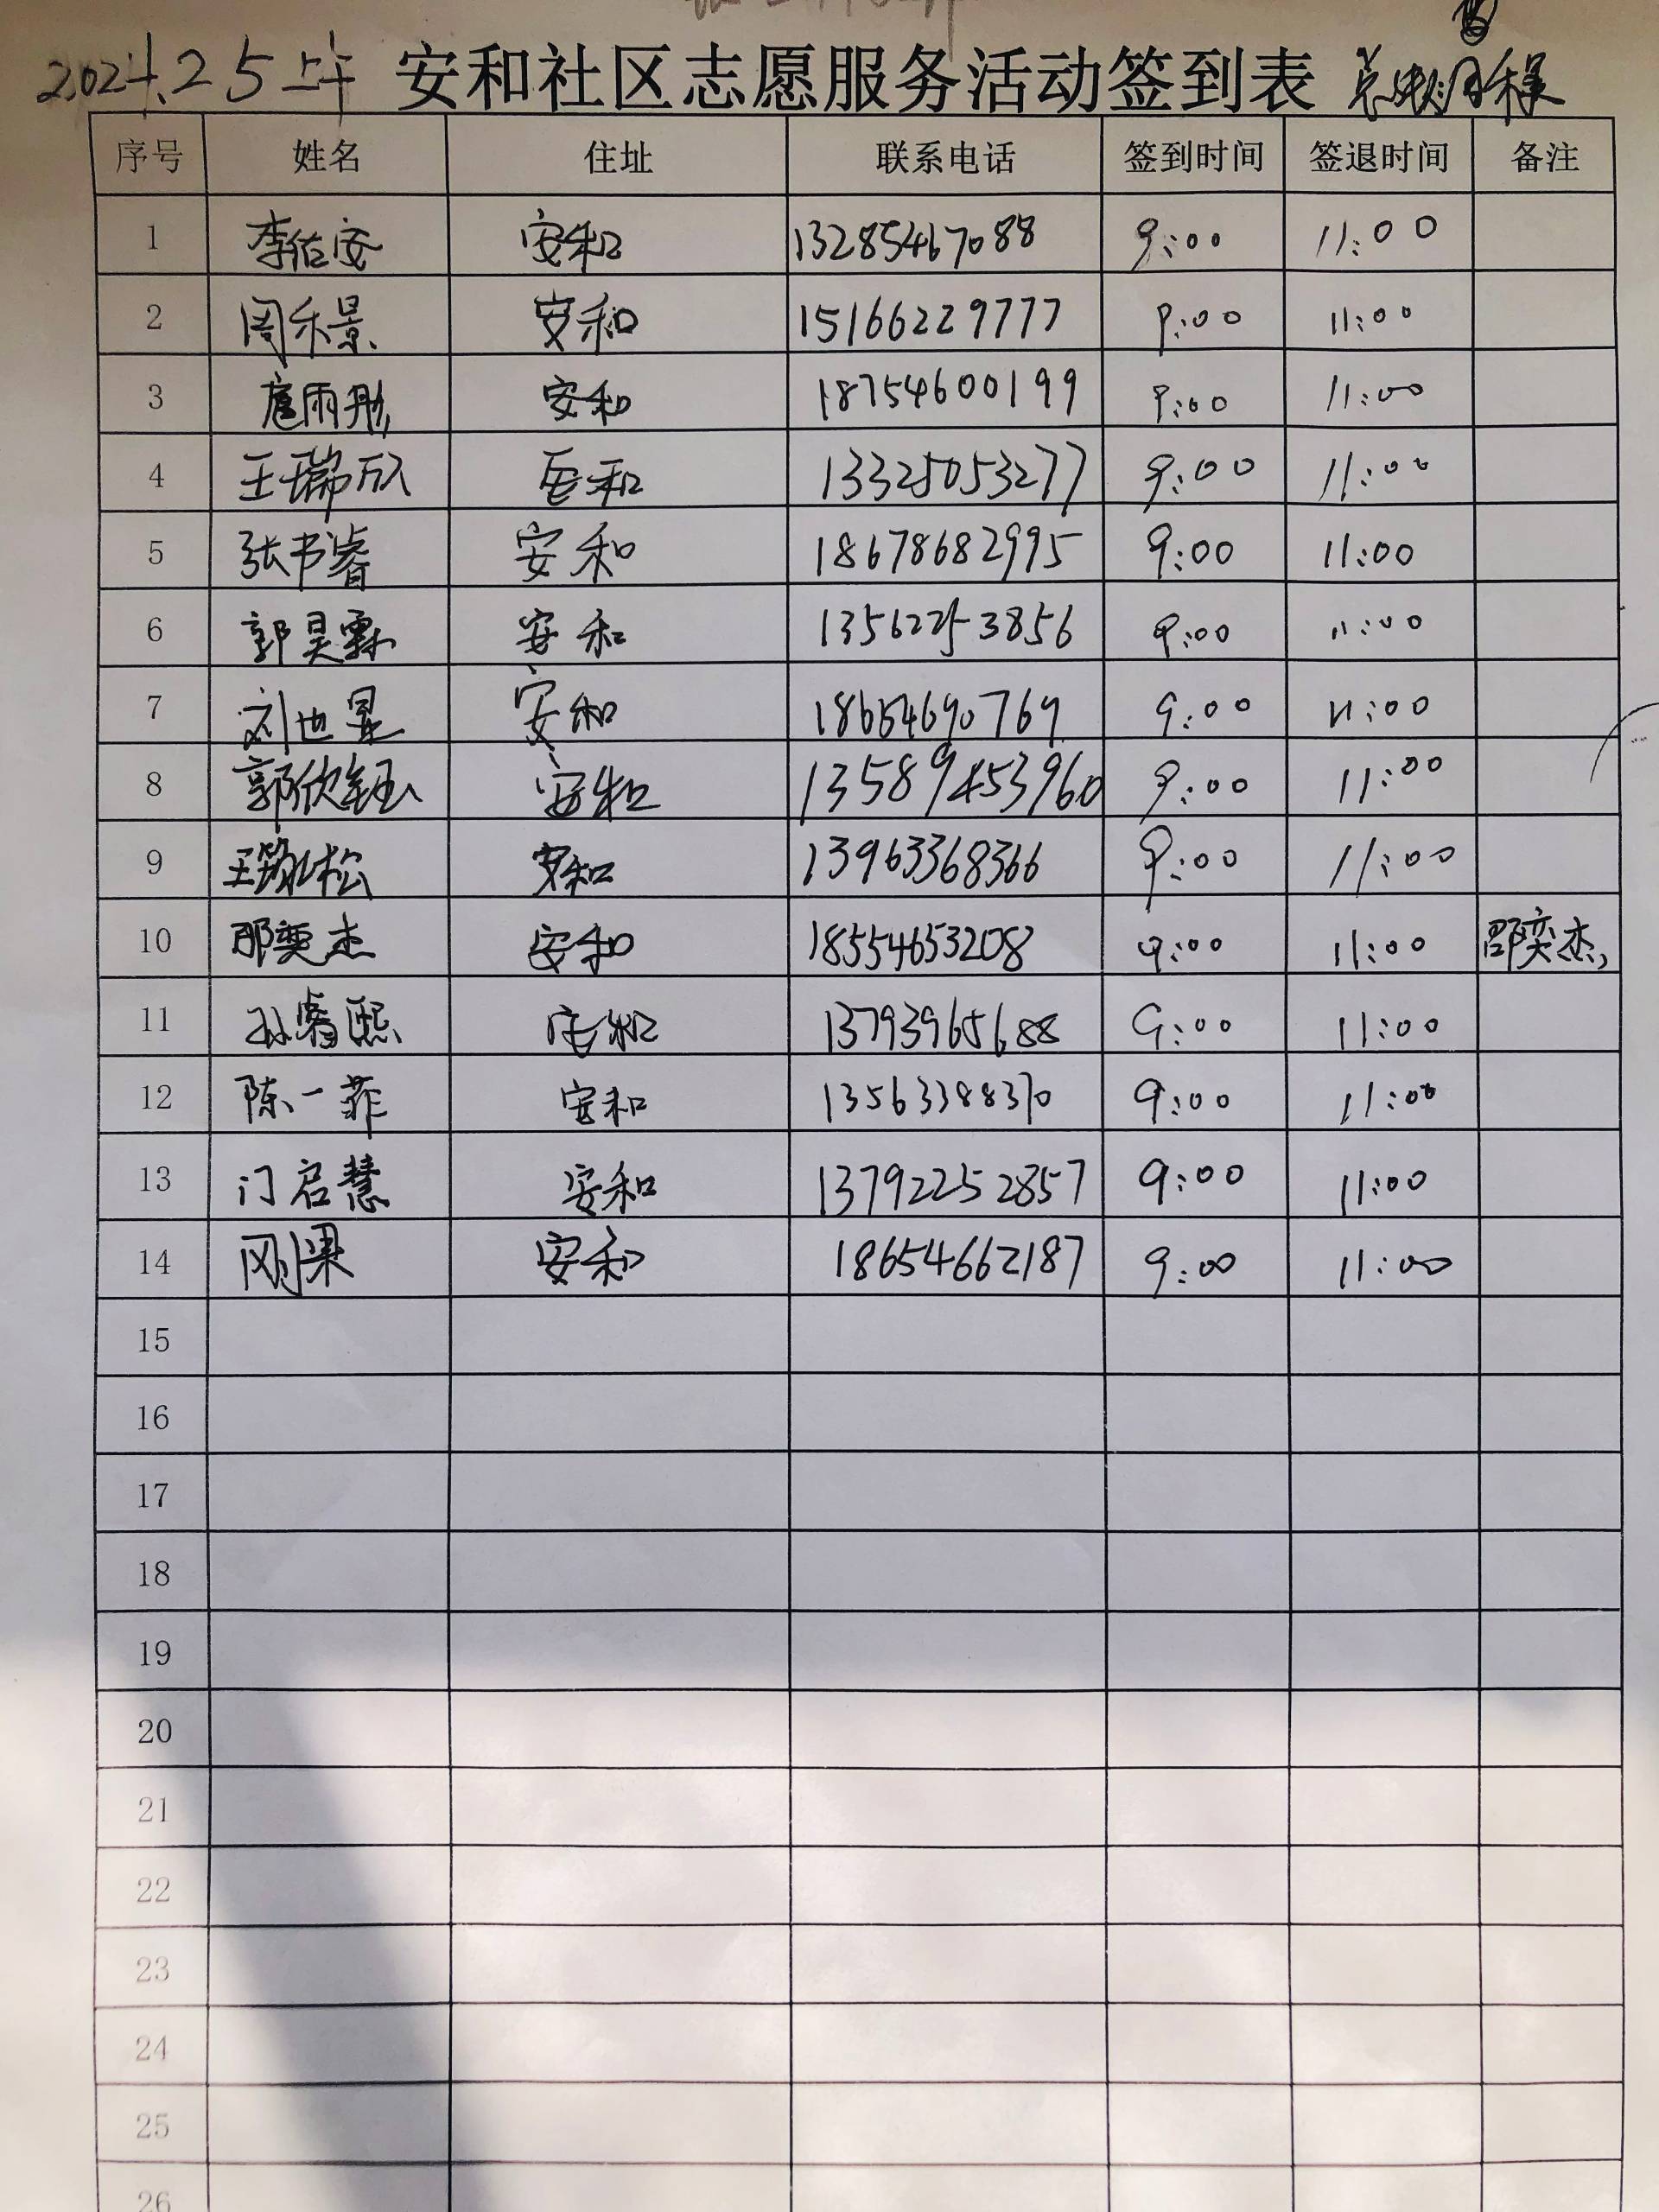 2024.2.5上午 安和社区志愿服务活动签到表
序号 姓名 住址 联系电话 签到时间 签退时间 备注
1 李佑安 安和 13285467088 9:00 11:00
2 周禾景 安和 15166229777 9:00 11:00
3 扈雨彤 安和 18754600199 9:00 11:00
4 王瑞欣 安和 13325053277 9:00 11:00
5 张书睿 安和 18678682995 9:00 11:00
6 郭昊霖 安和 13562253856 9:00 11:00
7 刘世昱 安和 18654690769 9:00 11:00
8 郭欣钰 安和 13589453960 9:00 11:00
9 安和 13963368366 9:00 11:00
10 邵奕杰 安和 18554653208 9:00 11:00 邵奕杰
11 孙睿熙 安和 13793965688 9:00 11:00
12 陈一菲 安和 13563388370 9:00 11:00
13 门启慧 安和 13792252857 9:00 11:00
14 刚果 安和 18654662187 9:00 11:00
15
16
17
18
19
20
21
22
23
24
25
26